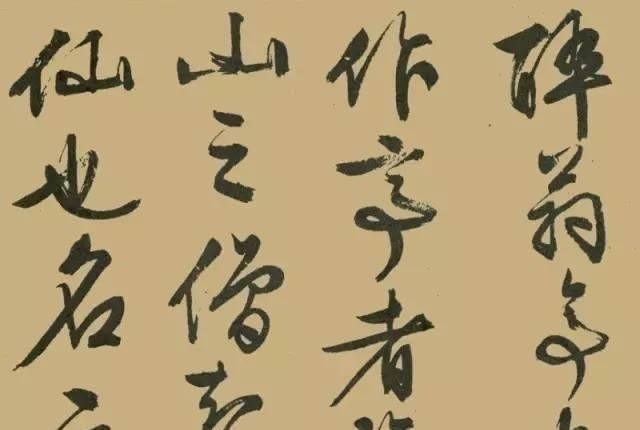 醉翁亭
作亭者
山之僧
仙也名